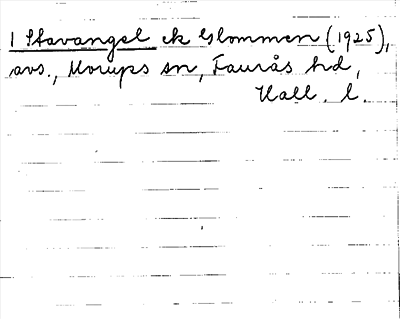 1 Stavangel ek Glommen (1925),
avs., Morups sn, Faurås hd,
Hall. l.